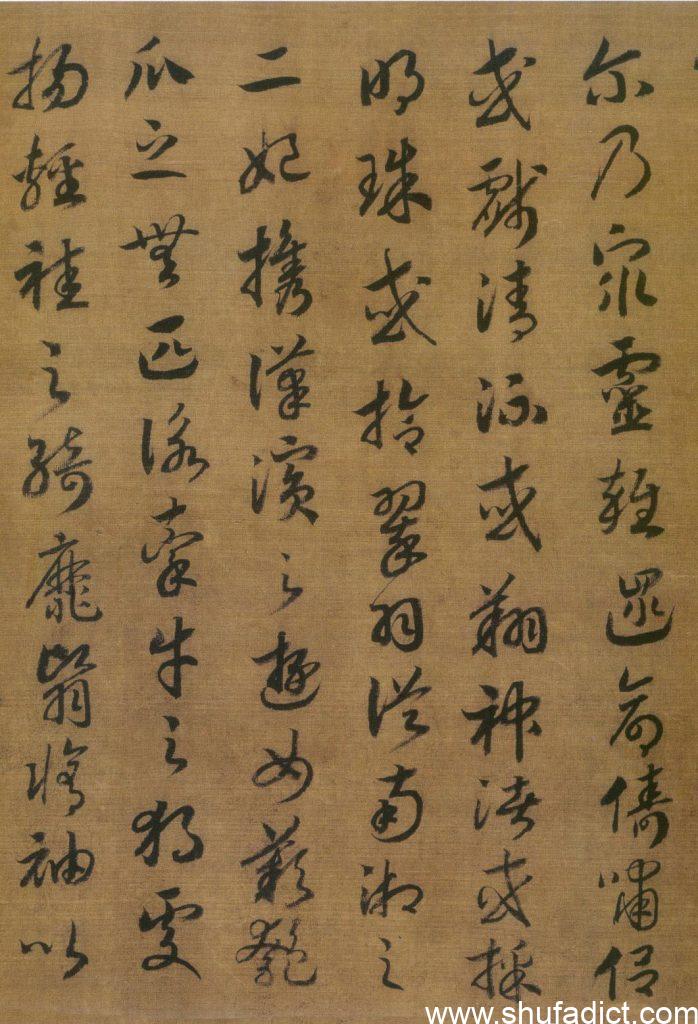 尔乃衆靈雜遝命儔嘯侶
或戲清流或翔神渚或採
明珠或拾翠羽從南湘之
二妃攜漢濱之遊女歎匏
瓜之無匹詠牽牛之獨處
揚輕袿之綺靡翳脩袖以
www.shufadict.com